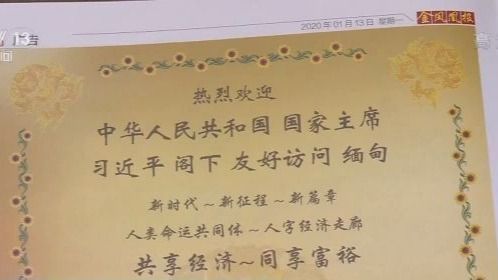 13
告
2020年01月13日 星期一
金凤凰报
高
热烈欢迎
中华人民共和国 国家主席
习近平 阁下 友好访问 缅甸
新时代～新征程～新篇章
人类命运共同体～人字经济走廊
共享经济～同享富裕